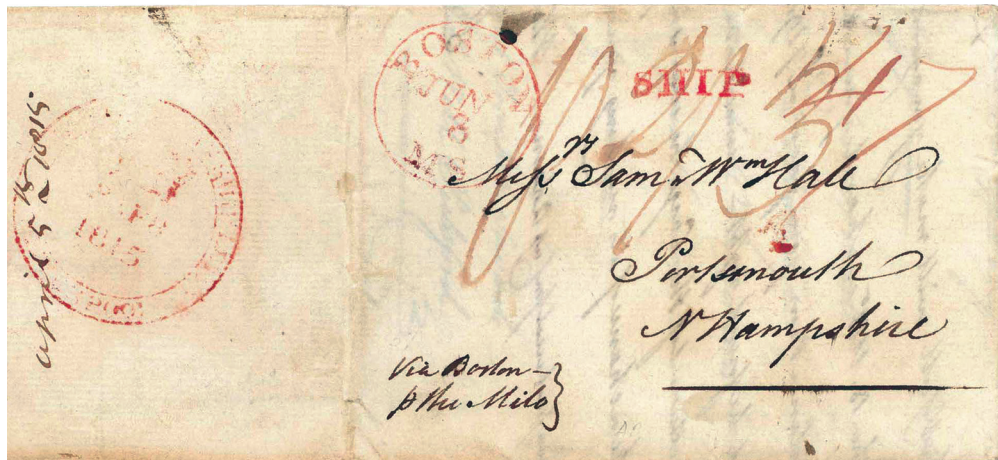 April 5 & 15 1815
1815
BOSTON
JUN
8
MS
SHIP
Mess.rs Sam & Wm Hale
Portsmouth
N Hampshire
Via Boston —
p the Milo